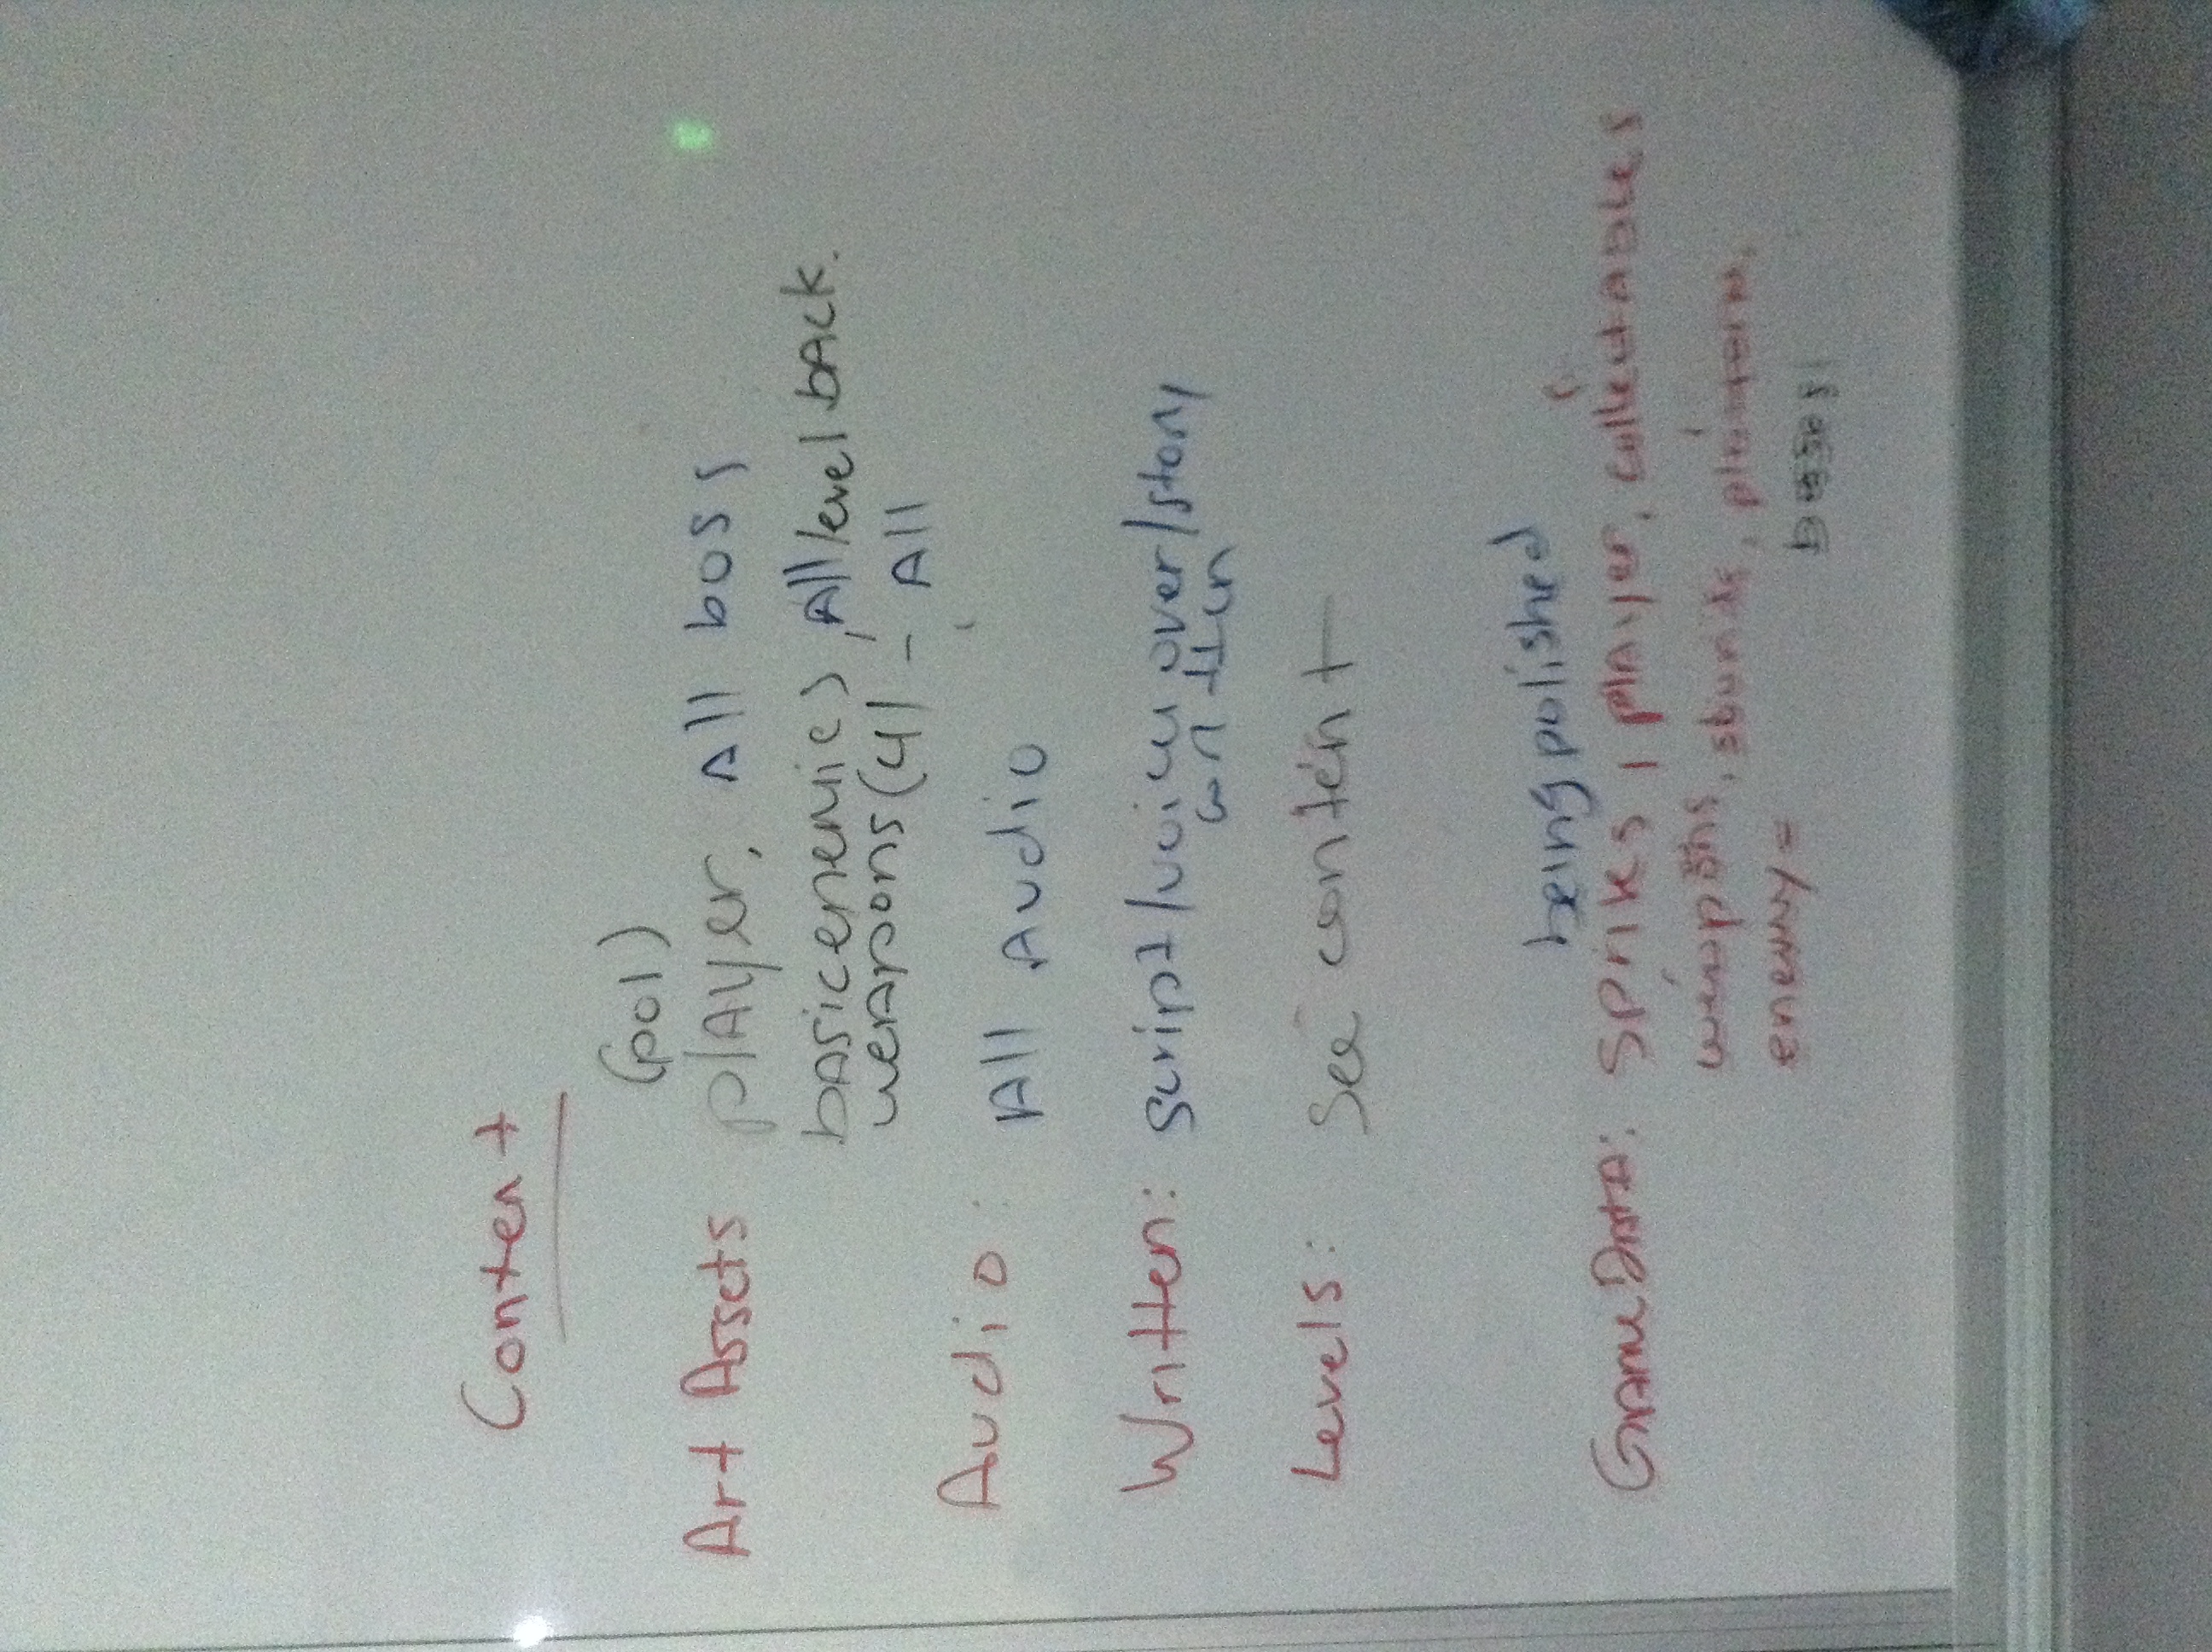 Content
(pol)
Art Assets player, All boss
basic enemies, All level back.
weapons (4) - All
Audio: All Audio
Written: script/voice over/story
written
Levels: See content
being polished
Game Data: sprites, player, collectables
weapons, sounds, platform,
enemy =
bosses